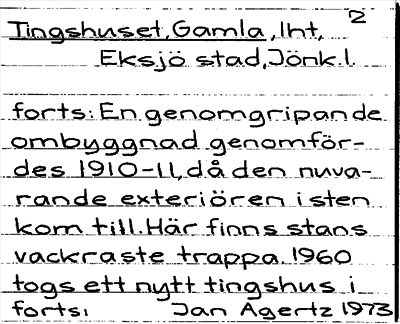 2
Tingshuset, Gamla, Iht,
Eksjö stad, Jönk.l.
forts: En genomgripande
ombyggnad genomför-
des 1910-11, då den nuva-
rande exteriören i sten
kom till. Här finns stans
vackraste trappa. 1960
togs ett nytt tingshus i
forts: Jan Agertz 1973